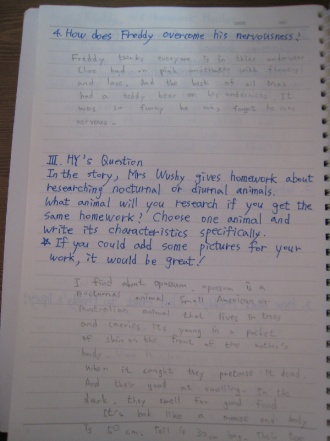 4. How does Freddy overcome his nervousness?
Freddy everyone is in their underwear
had on pink with flowers
and lace, And the best of all Max
had a teddy bear on his underwear. It
was so funny he was forget his
nervous.
III. HY's Question
In the story, Mrs Wushy gives homework about
researching nocturnal or diurnal animals.
What animal will you research if you get the
same homework? Choose one animal and
write its characteristics specifically.
* If you could add some pictures for your
work, it would be great!
I find about opossum. opossum is a
nocturnal animal. Small American or
Australian animal that lives in trees
and carries its young in a pocket
of skin on the front of the mother's
body.
When it caught they pretend it dead.
And their good at smelling. In the
dark, they smell for good food
It's but like a mouse and body
is 50 cm. Tail is 30 cm